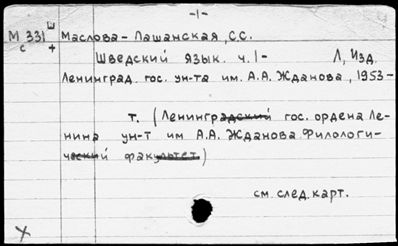 -1-
Ш
М 331 Маслова-Лашанская, С.С.
с +
Шведский язык. ч.1- Л, Изд.
Ленинград. гос. ун-та им. А.А. Жданова, 1953-
т. (Ленинградский гос. ордена Ле-
нина ун-т им А.А. Жданова Филологи-
ческий факультет)
см. след. карт.